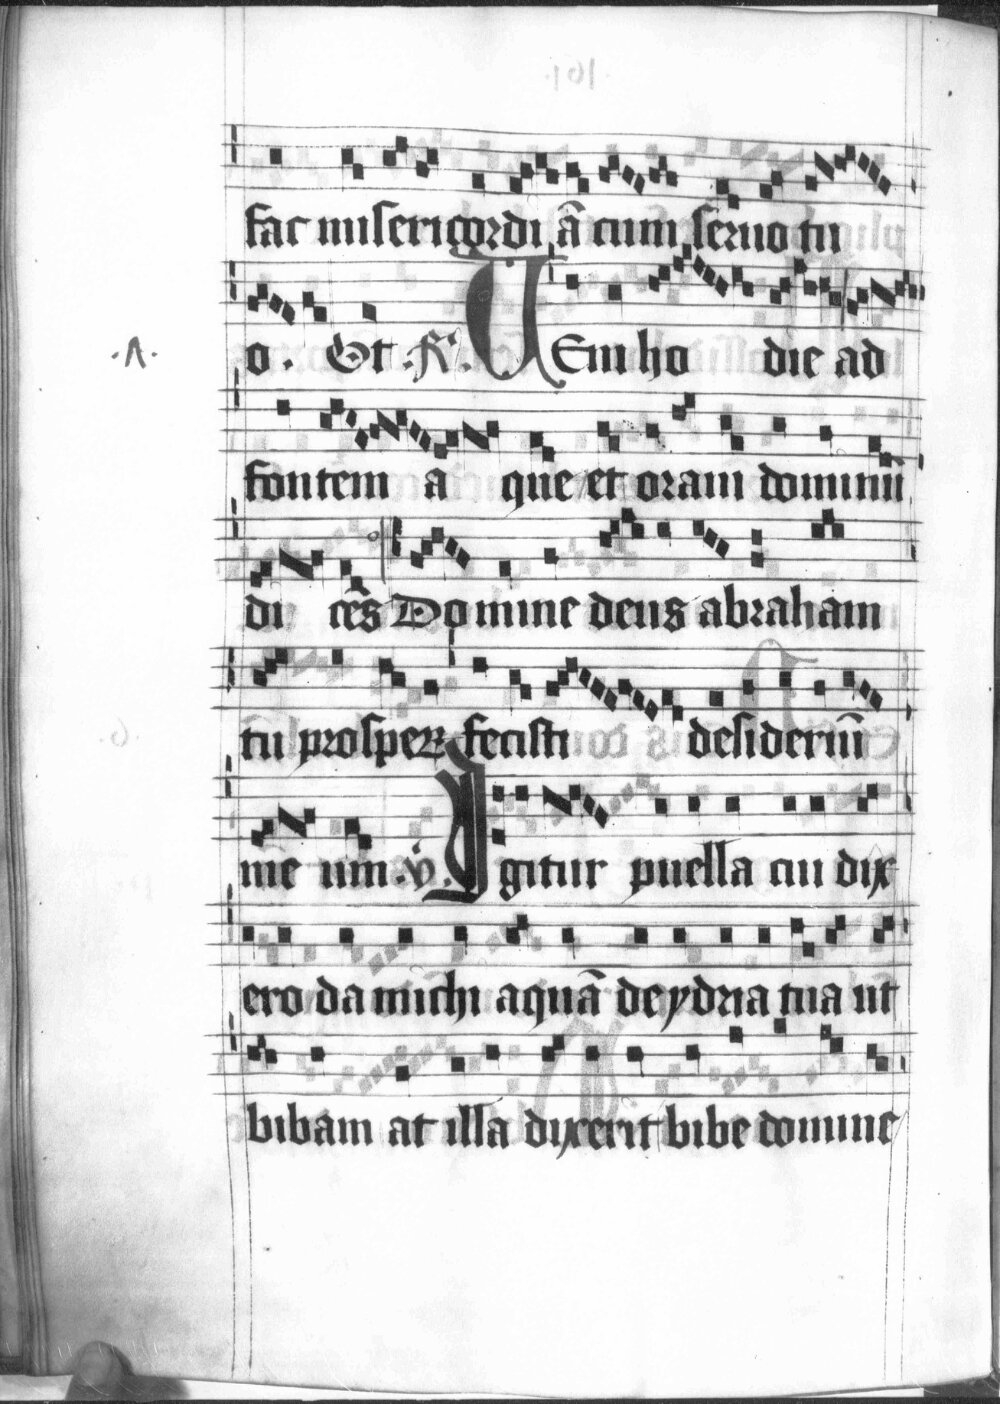 fac misericordiā cum seruo tu
o. Et .R. Veni ho die ad
.A.
fontem a que et oraui dominū
di cēs Domine deus abraham
tu prosperꝝ fecisti desideriū
me um. v̇. Igitur puella cui dix
ero da michi aquā de ydria tua ut
bibam at illa dixerit bibe domine